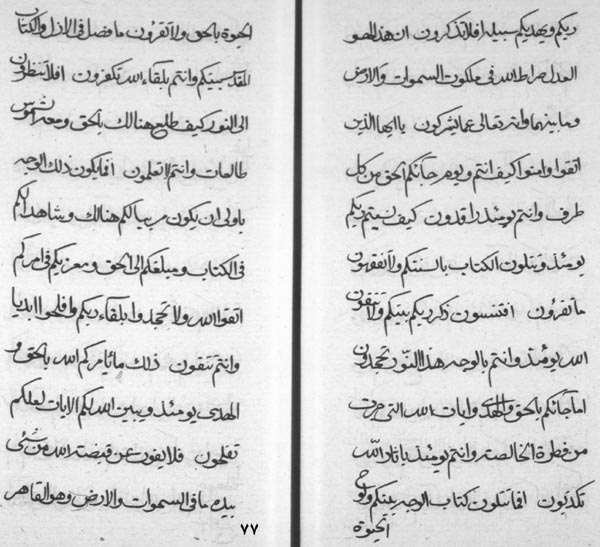 ربكم ويهديكم سبيله افلا تذكرون ان هذا لهو
العدل صراط الله فى ملكوت السموات والارض
وما بينهما وانه تعالى عما يشركون يا ايها الذين
اتقوا وامنوا كيف انتم ويوم جائكم الحق من كل
طرف وانتم يومئذ راقدون كيف نسيتم ربكم
يومئذ وتتلون الكتاب بالسنتكم ولا تفقهون
ما تقرون افتنسون ذكر ربكم بينكم ولا تتقون
الله يومئذ وانتم بالوجه هذا النور تجحدون
اما جائكم بالحق والهدى وايات الله التى جرت
من فطرة الخالصة وانتم يومئذ باثار الله
تكذبون افما تتلون كتاب الوجه بينكم ولوح
الحيوة
الحيوة بالحق ولا تقرون ما فصل فى الازل والكتاب
القدس بينكم وانتم بلقاء الله تكفرون افلا تنظرون
الى النور كيف طلع هنالك بالحق ومعه شموس
طالعات وانتم لا تعلمون افما يكون ذلك الوجه
باولى ان يكون مربيا لكم هنالك وشاهدا لكم
فى الكتاب ومبلغكم الى الحق ومعزيكم فى امركم
اتقوا الله ولا تجحدوا بلقاء ربكم وافلحوا ابديا
وانتم تتقون ذلك ما يامركم الله بالحق و
الهدى يومئذ ويبين الله لكم الايات لعلكم
تفلحون فلا يفوت عن قبضته الله من شئ
بيده ما فى السموات والارض وهو القاهر
٧٧